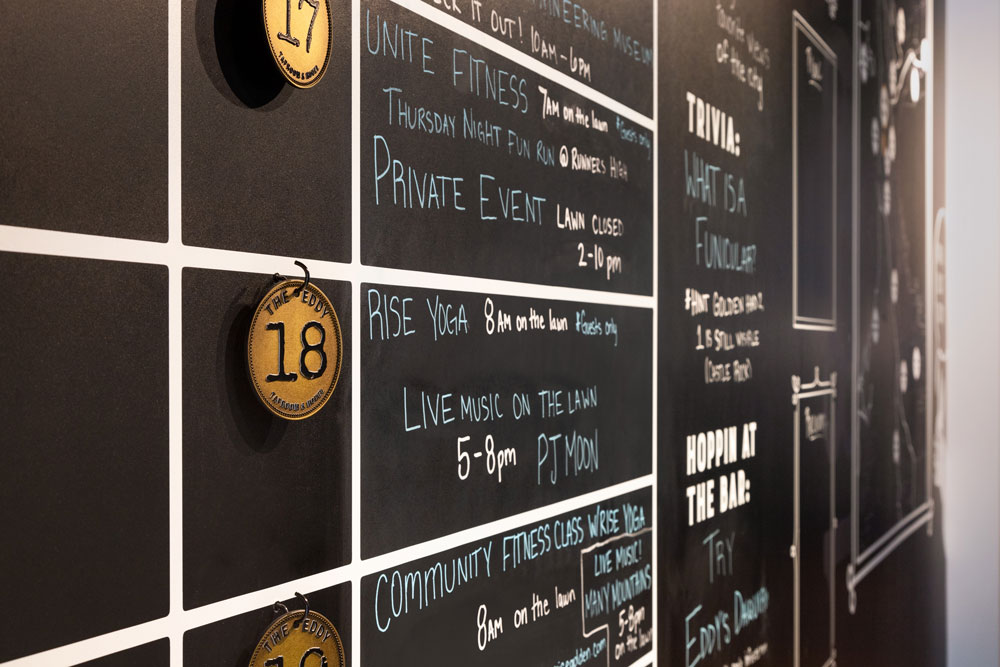 17
TAPROOM &
ENGINEERING MUSEUM
CK IT OUT! 10AM-6PM
UNITE FITNESS 7AM on the lawn *Guests only
THURSDAY NIGHT FUN RUN @ RUNNERS HIGH
PRIVATE EVENT LAWN CLOSED
2-10 pm
THE EDDY
18
TAPROOM &
RISE YOGA 8AM on the lawn *Guests only
LIVE MUSIC ON THE LAWN
5-8pm PJ MOON
THE EDDY
COMMUNITY FITNESS CLASS W/RISE YOGA
8AM on the lawn
LIVE MUSIC!
MANY MOUNTAINS
5-8pm
on the lawn
favorite views
of the city
TRIVIA:
WHAT IS A
FUNICULAR?
*HINT GOLDEN HAD 2
1 IS STILL VISIBLE
(CASTLE ROCK)
HOPPIN AT
THE BAR:
TRY
EDDY'S